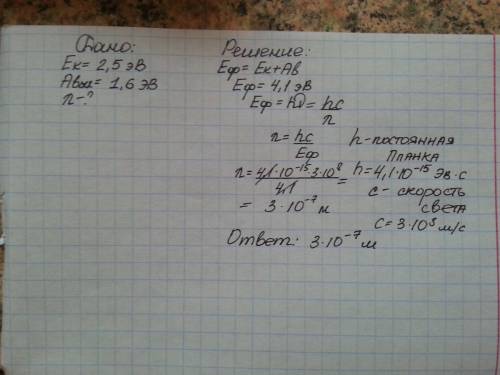 Дано:
Eк = 2,5 эВ
Aвых = 1,6 эВ
λ - ?
Решение:
Eф = Eк + Aв
Eф = 4,1 эВ
Eф = hν = hc/λ
λ = hc/Eф
h - постоянная
Планка
λ = 4,1·10⁻¹⁵·3·10⁸/4,1 =
h = 4,1·10⁻¹⁵ эВ·с
= 3·10⁻⁷ м
c - скорость
света
c = 3·10⁸ м/с
Ответ: 3·10⁻⁷ м